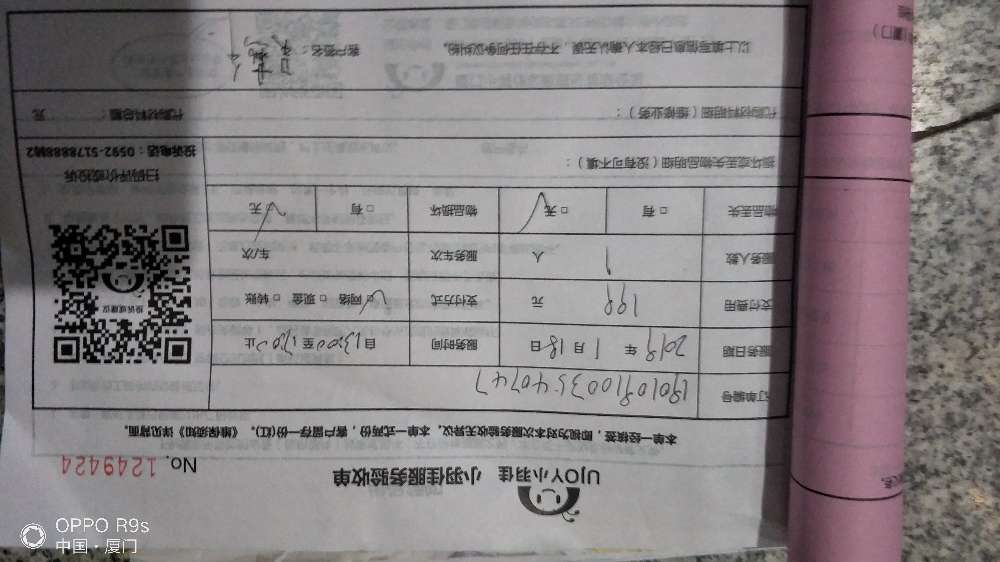 UJOY小羽佳 小羽佳服务验收单
No. 1249424
本单一经核签，即视为对本次服务验收无异议。本单一式两份，客户留存一份(红)。《维保须知》详见背面。
订单编号 190109100354074７
服务日期 2019 年 1 月 18 日 服务时间 自 13:00 至 17:00 止
支付费用 199 元 支付方式 □网络 □现金 □转账
服务人数 1 人 服务车次 车/次
物品丢失 □有 □无 物品损坏 □有 □无
投诉或建议
扫码评价或投诉
投诉电话：0592-5178888转2
损坏或丢失物品明细（没有可不填）：
代购材料明细（维修业务）： 代购材料总额： 元
以上填写信息已经本人确认无误，不存在任何争议纠纷。 客户签名：
OPPO R9s
中国·厦门